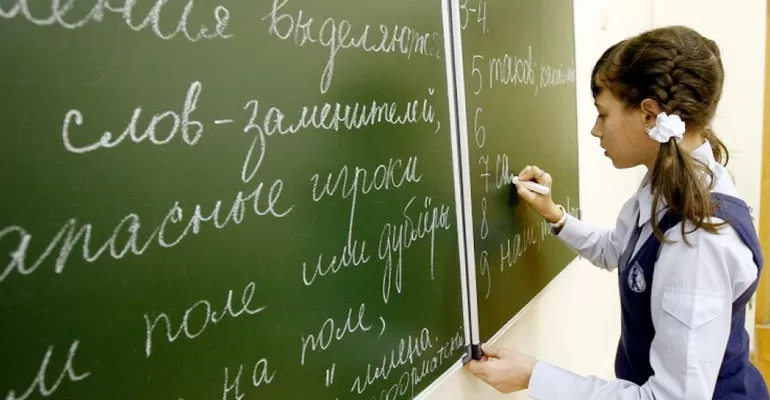 выделяются
слов-заменителей,
апасные игроки
или дублёры
м поле
на поле,
"имена
3-4.
5 таков,
6
7 са
8
9 нам,